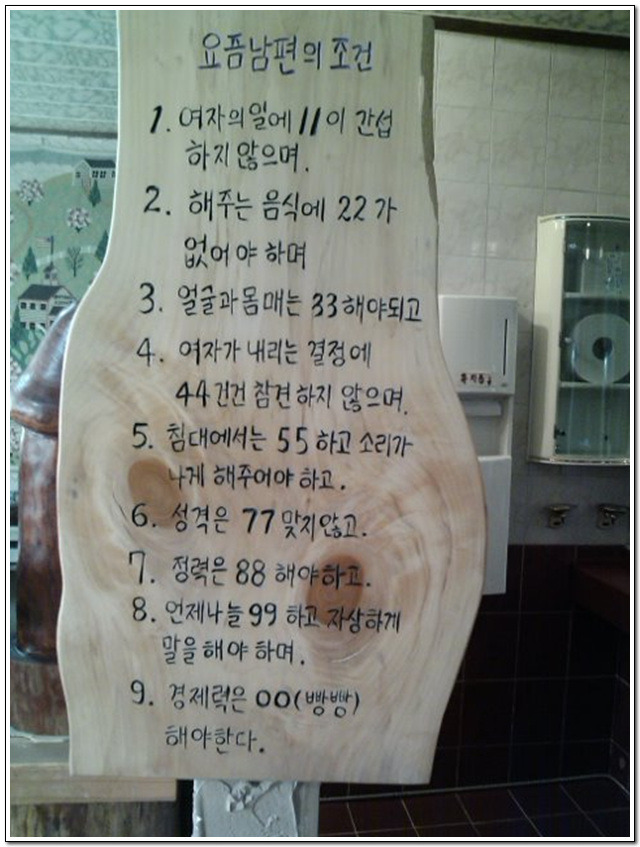 요즘남편의 조건
1. 여자의일에 11이 간섭
하지않으며.
2. 해주는 음식에 22가
없어야 하며
3. 얼굴과몸매는 33해야되고
4. 여자가 내리는 결정에
44건건 참견하지 않으며.
5. 침대에서는 55하고 소리가
나게 해주어야 하고.
6. 성격은 77맞지않고.
7. 정력은 88 해야하고.
8. 언제나늘99 하고 자상하게
말을해야 하며.
9. 경제력은 00(빵빵)
해야한다.